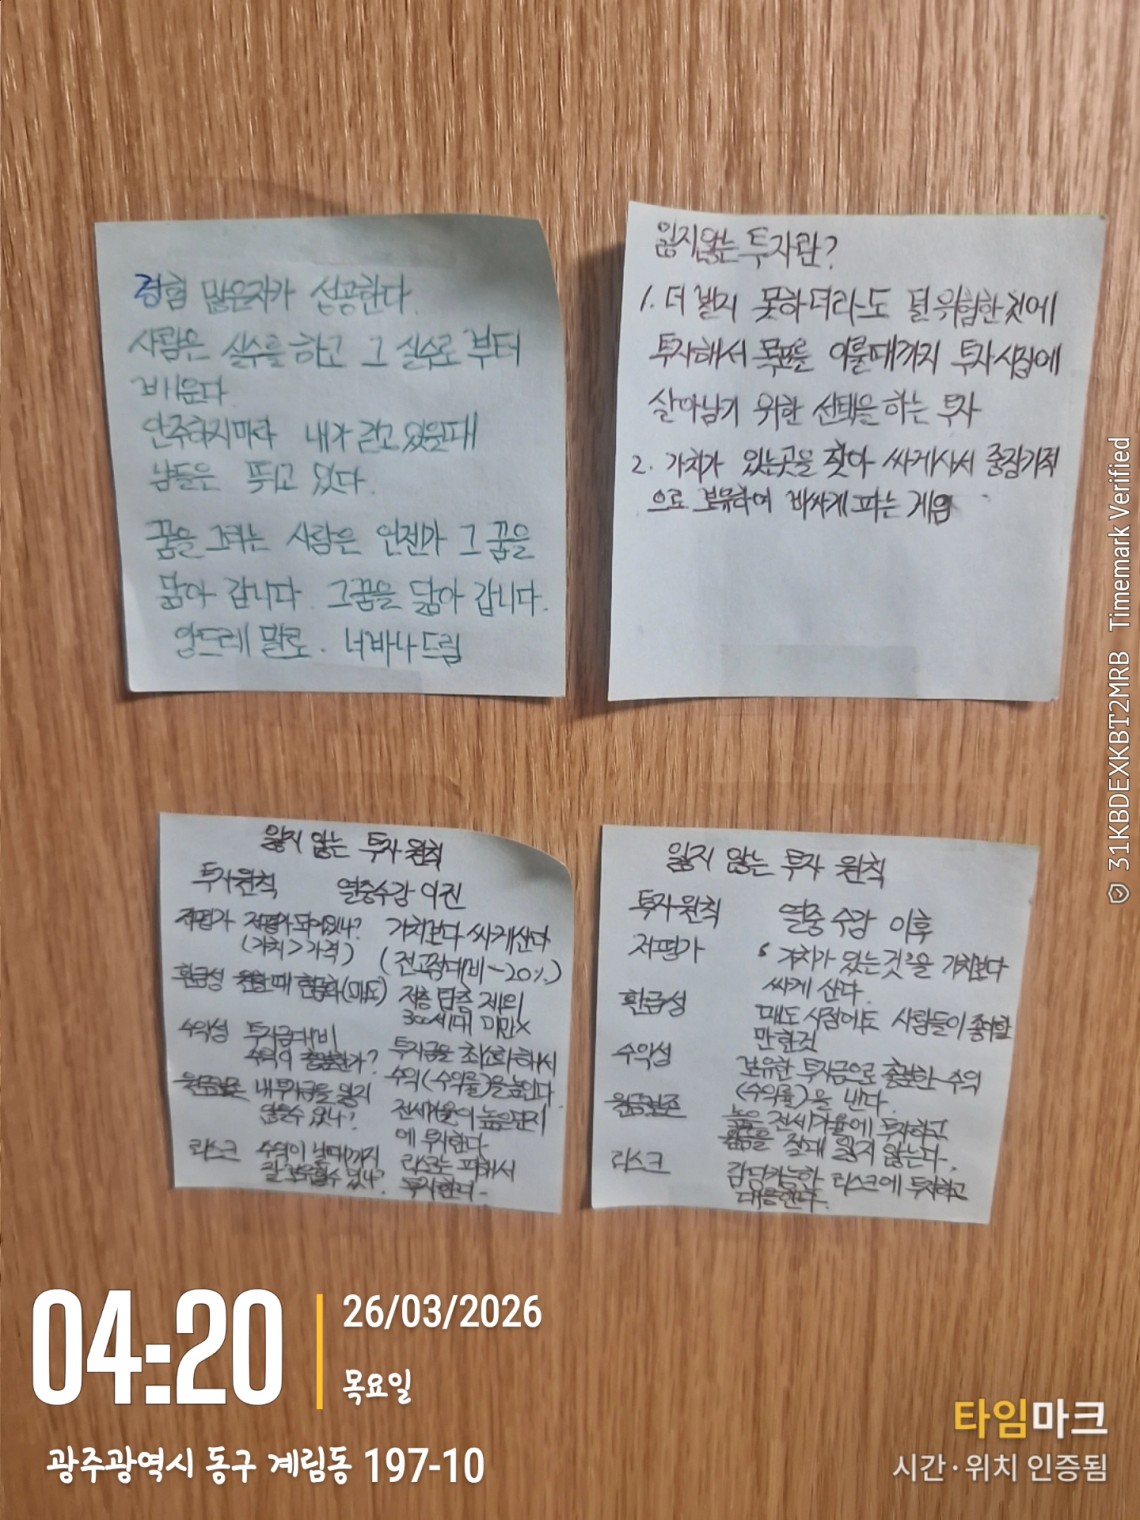 경험 많은자가 성공한다.
사람은 실수를 하고 그 실수로 부터
배운다
안주하지마라 내가 걷고있을때
남들은 뛰고 있다.
꿈을 그리는 사람은 언젠가 그 꿈을
닮아 갑니다. 그꿈을 닮아 갑니다.
앙드레 말로. 너바나드림
잃지않는 투자란?
1. 더 벌지 못하더라도 덜 위험한것에
투자해서 목표를 이룰때까지 투자시장에
살아남기 위한 선택을 하는 투자
2. 가치가 있는곳을 찾아 싸게사서 중장기적
으로 보유하여 비싸게 파는 게임
잃지 않는 투자 원칙
투자원칙 열중수강 이전
저평가 저평가 되어있나? 가치보다 싸게산다
(가치>가격) (전고점대비 -20%)
환급성 원할때 현금화(매도) 저층 탑층 제외
300세대 미만X
수익성 투자금대비 투자금을 최소화해서
수익이 충분한가? 수익(수익률)을 높인다.
원금보존 내 투자금을 잃지 전세가율이 높은단지
않을수 있나? 에 투자한다
리스크 수익이 날때까지 리스크는 피해서
잘 보유할수 있나? 투자한다.
잃지 않는 투자 원칙
투자원칙 열중 수강 이후
저평가 "가치가 있는것"을 가치보다
싸게 산다.
환급성 매도 시점에도 사람들이 좋아할
만한것
수익성 보유한 투자금으로 충분한 수익
(수익률)을 낸다.
원금보존 높은 전세가율에 투자하고
원금을 절대 잃지 않는다.
리스크 감당가능한 리스크에 투자하고
대응한다.
04:20
26/03/2026
목요일
광주광역시 동구 계림동 197-10
타임마크
시간·위치 인증됨
31KBDEXKBT2MRB Timemark Verified